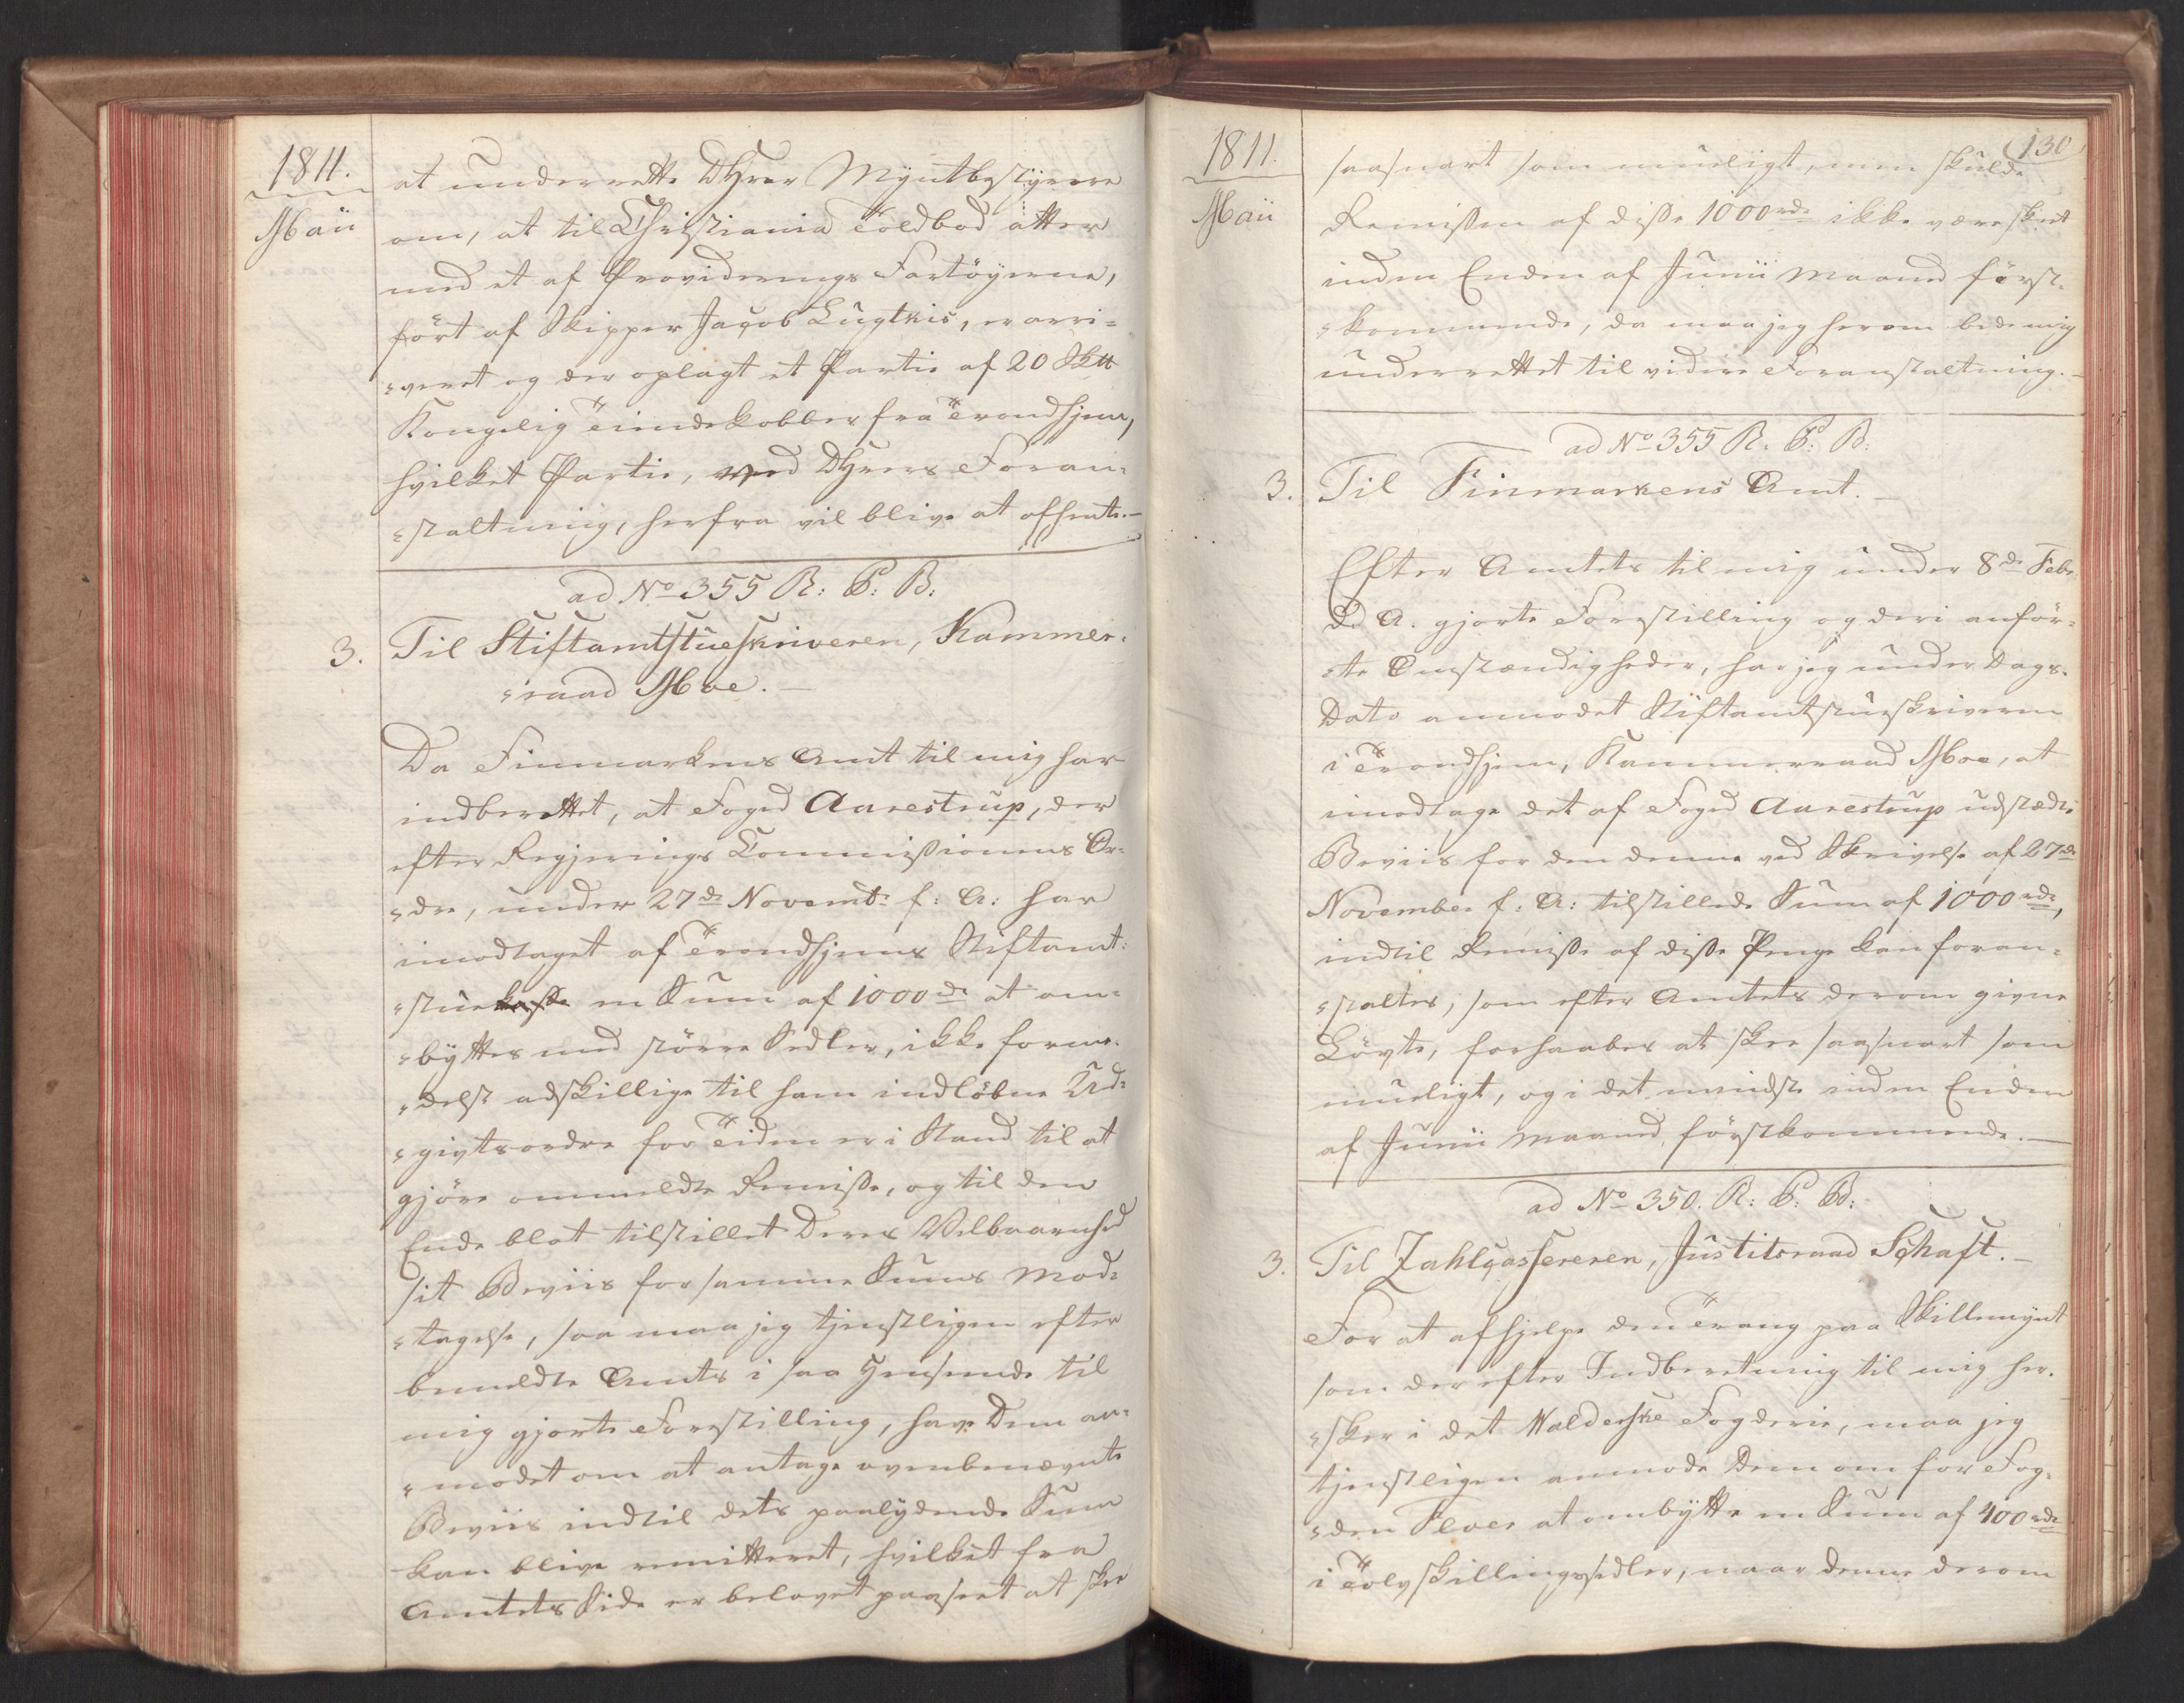 1811.
Maii
at underrette DHrer Myntbestÿrere
om, at til Christiania Toldbod atter
med et af Provideringsfartöyerne,
fört af Skipper Jacob Lugtnis, er arri=
=veret og der oplagt et Partie af 20 Sk℔
Kongelig Tiendekobber fra Trondhjem,
hvilket Partie, ved DHrers Foran=
=staltning, herfra vil blive at afhente.—
ad No 355 R: P: B:
3. Til Stiftamtstueskriveren, Kammer=
=raad Moe. —
Da Finmarkens Amt til mig har
indberettet, at Foged Aarestrup, der
efter Regjerings Commissionens Or=
=dre, under 27de Novembr f: A: har
imodtaget af Trondhjems Stiftamt=
=stuekasse en Sum af 1000 rd at om=
=byttes med större Sedler, ikke forme=
=delst adskillige til ham indlöbne Ud=
=givtsordre for Tiden er i Stand til at
gjöre ommeldte Remisse, og til den
Ende blot tilstillet Deres Velbaarnhed
sit Beviis for samme Sums Mod=
=tagelse, saa maa jeg tjenstligen efter
bemeldte Amts i saa Henseende til
mig gjorte Forestilling, have Dem an=
=modet om at antage ovenbenævnte
Beviis indtil dets paalydende Sum
kan blive remitteret, hvilket fra
Amtets Side er belovet paaseet at skee
1811.
Maii
130
saasnart som mueligt, men skulde
Remissen af disse 1000 rd ikke være skeet
inden Enden af Junii Maaned först=
=kommende, da maa jeg herom bede mig
underrettet til videre Foranstaltning.—
ad No 355 R: P: B:
3. Til Finmarkens Amt. —
Efter Amtets til mig under 8de Febr:
d. A. gjorte Forestilling og deri anför=
=te Omstændigheder, har jeg under Dags=
Dato anmodet Stiftamtstueskriveren
i Trondhjem, Kammerraad Moe, at
imodtage det af Foged Aarestrup udstædte
Beviis for den denne ved Skrivelse af 27de
November f: A: tilstillede Sum af 1000 rd,
indtil Remisse af disse Penge kan foran=
=staltes, som efter Amtets derom givne
Lövte, forhaabes at skee saasnart som
mueligt, og i det mindste inden Enden
af Junii Maaned förstkommende. —
ad No 350. R: P: B:
3. Til Zahlcassereren, Justitsraad Schaft. —
For at afhjelpe den Trang paa Skillemynt
som der efter Indberetning til mig her=
=sker i det Walderske Fogderie, maa jeg
tjenstligen anmode Dem om for Fog=
=den Floer at ombytte en Sum af 400 rd
i Tolvskillingssedler, naar denne derom